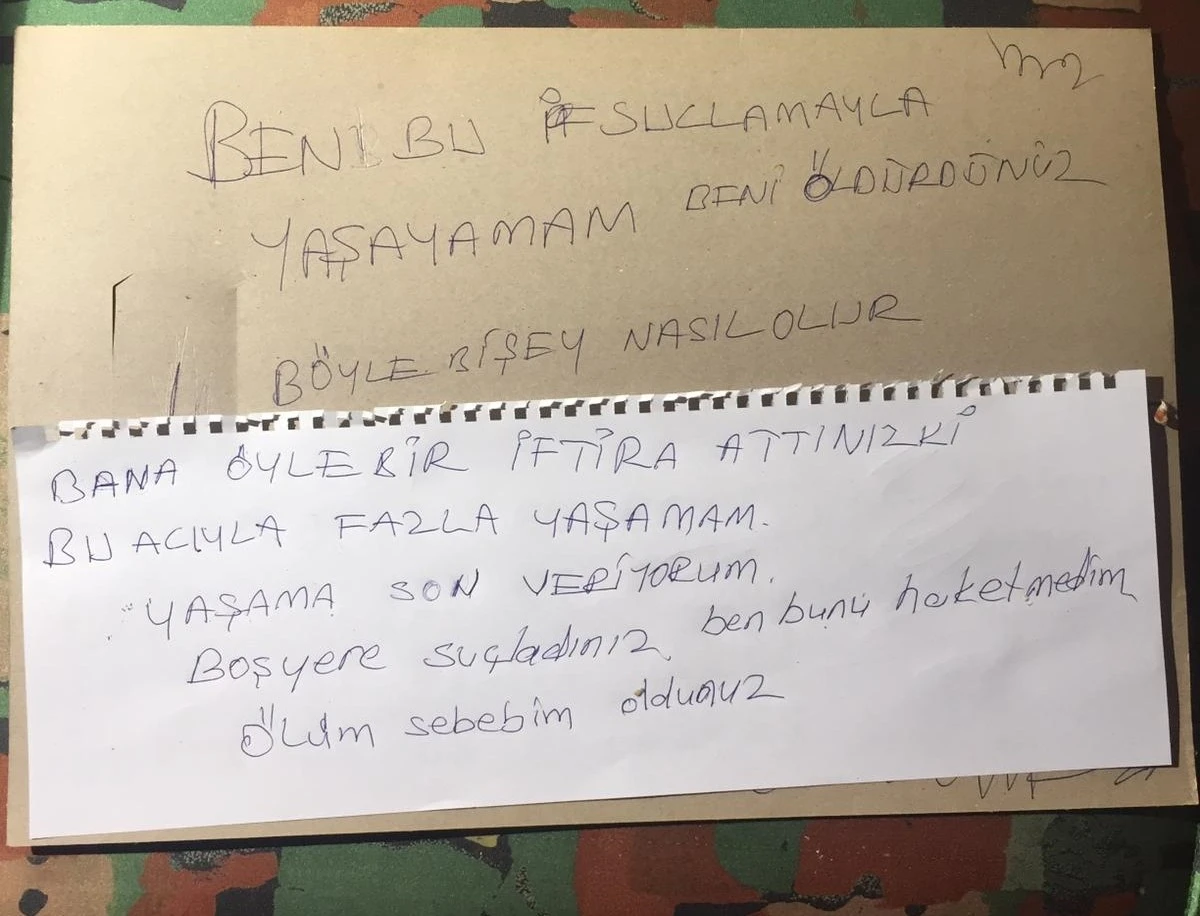 BENİ BU İF SUCLAMAYLA
YAŞAYAMAM BENİ ÖLDÜRDÜNÜZ
BÖYLE BİŞEY NASIL OLUR
BANA ÖYLE BİR İFTİRA ATTINIZKİ
BU ACIYLA FAZLA YAŞAMAM.
YAŞAMA SON VERİYORUM.
BOŞYERE suçladınız ben bunu haketmedim
ÖLÜM sebebim oldunuz